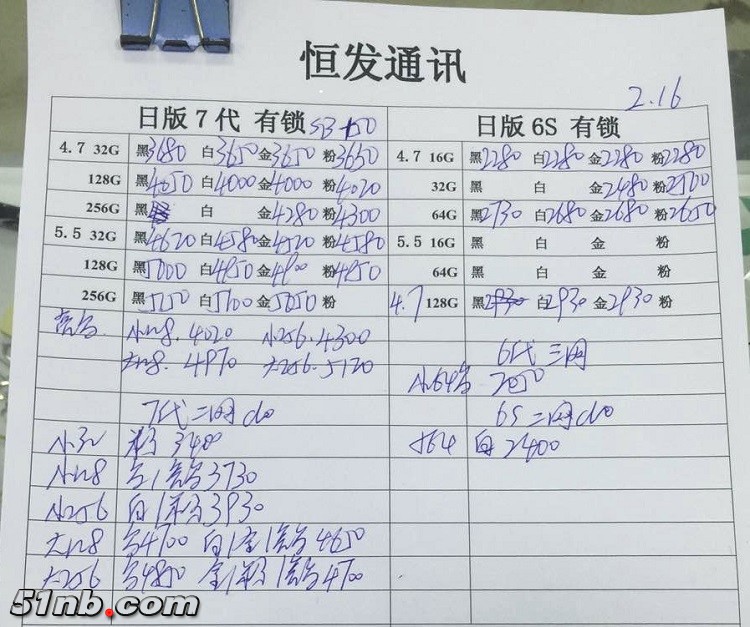 恒发通讯
2.16
日版7代 有锁 日版6S 有锁
4.7 32G 黑3680 白3650 金3650 粉3650 4.7 16G 黑2280 白2280 金2280 粉2280
128G 黑4050 白4000 金4000 粉4020 32G 黑 白 金2480 粉2500
256G 黑 白 金4280 粉4300 64G 黑2730 白2680 金2680 粉2650
5.5 32G 黑4620 白4580 金4520 粉4580 5.5 16G 黑 白 金 粉
128G 黑5000 白4950 金4900 粉4950 64G 黑 白 金 粉
256G 黑5250 白5100 金5050 粉 4.7 128G 黑2930 白2930 金2930 粉
小128.4020 小256.4300
大128.4970 大256.5120 6代三网
小64 2050
7代二网 6S二网
小32 粉3400 白2400
小128 3730
小256 白 3930
大128 4700 白 4650
大256 4850 金 粉 4700
51nb.com